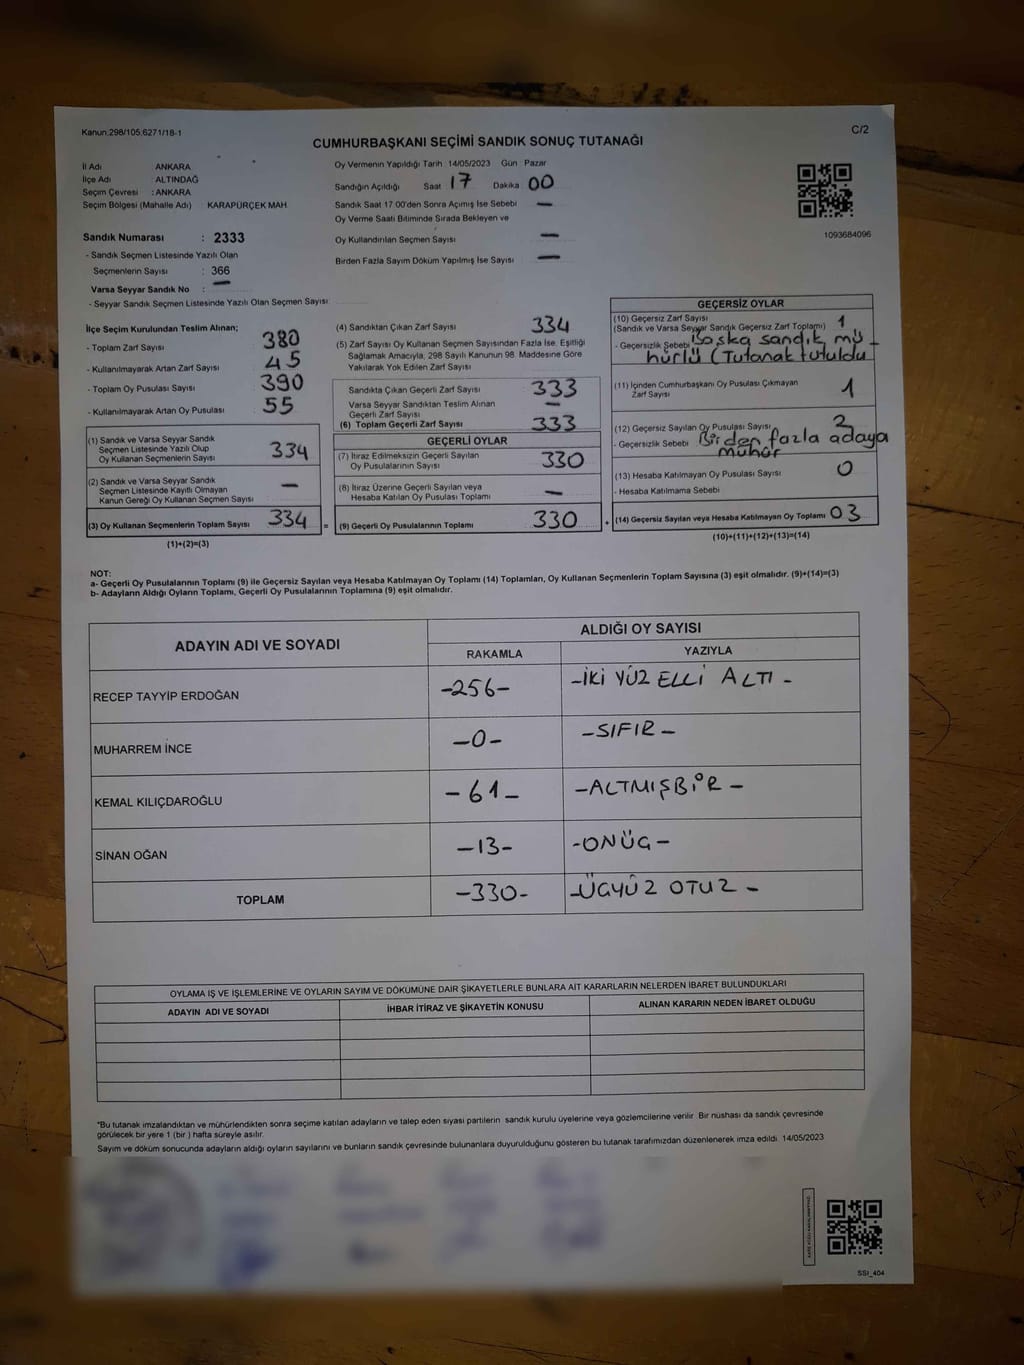 Kanun;298/105;6271/18-1
C/2
CUMHURBAŞKANI SEÇİMİ SANDIK SONUÇ TUTANAĞI
İl Adı ANKARA
İlçe Adı ALTINDAĞ
Seçim Çevresi : ANKARA
Seçim Bölgesi (Mahalle Adı) KARAPÜRÇEK MAH.
Sandık Numarası : 2333
- Sandık Seçmen Listesinde Yazılı Olan
Seçmenlerin Sayısı : 366
Varsa Seyyar Sandık No : —
- Seyyar Sandık Seçmen Listesinde Yazılı Olan Seçmen Sayısı
Oy Vermenin Yapıldığı Tarih 14/05/2023 Gün : Pazar
Sandığın Açıldığı Saat 17 Dakika 00
Sandık Saat 17:00'den Sonra Açımış İse Sebebi —
Oy Verme Saati Bitiminde Sırada Bekleyen ve
Oy Kullandırılan Seçmen Sayısı —
Birden Fazla Sayım Döküm Yapılmış İse Sayısı —
1093684096
İlçe Seçim Kurulundan Teslim Alınan;
- Toplam Zarf Sayısı 380
- Kullanılmayarak Artan Zarf Sayısı 45
- Toplam Oy Pusulası Sayısı 390
- Kullanılmayarak Artan Oy Pusulası 55
(1) Sandık ve Varsa Seyyar Sandık
Seçmen Listesinde Yazılı Olup
Oy Kullanan Seçmenlerin Sayısı 334
(2) Sandık ve Varsa Seyyar Sandık
Seçmen Listesinde Kayıtlı Olmayan
Kanun Gereği Oy Kullanan Seçmen Sayısı —
(3) Oy Kullanan Seçmenlerin Toplam Sayısı 334 =
(1)+(2)=(3)
(4) Sandıktan Çıkan Zarf Sayısı 334
(5) Zarf Sayısı Oy Kullanan Seçmen Sayısından Fazla İse, Eşitliği
Sağlamak Amacıyla, 298 Sayılı Kanunun 98. Maddesine Göre
Yakılarak Yok Edilen Zarf Sayısı
Sandıkta Çıkan Geçerli Zarf Sayısı 333
Varsa Seyyar Sandıktan Teslim Alınan
Geçerli Zarf Sayısı —
(6) Toplam Geçerli Zarf Sayısı 333
GEÇERLİ OYLAR
(7) İtiraz Edilmeksizin Geçerli Sayılan
Oy Pusulalarının Sayısı 330
(8) İtiraz Üzerine Geçerli Sayılan veya
Hesaba Katılan Oy Pusulası Toplamı —
(9) Geçerli Oy Pusulalarının Toplamı 330 +
GEÇERSİZ OYLAR
(10) Geçersiz Zarf Sayısı
(Sandık ve Varsa Seyyar Sandık Geçersiz Zarf Toplamı) 1
- Geçersizlik Sebebi Başka sandık mü-
hürlü (Tutanak tutuldu
(11) İçinden Cumhurbaşkanı Oy Pusulası Çıkmayan
Zarf Sayısı 1
(12) Geçersiz Sayılan Oy Pusulası Sayısı
- Geçersizlik Sebebi Birden fazla adaya
mühür
(13) Hesaba Katılmayan Oy Pusulası Sayısı 0
- Hesaba Katılmama Sebebi
(14) Geçersiz Sayılan veya Hesaba Katılmayan Oy Toplamı 03
(10)+(11)+(12)+(13)=(14)
NOT:
a- Geçerli Oy Pusulalarının Toplamı (9) ile Geçersiz Sayılan veya Hesaba Katılmayan Oy Toplamı (14) Toplamları, Oy Kullanan Seçmenlerin Toplam Sayısına (3) eşit olmalıdır. (9)+(14)=(3)
b- Adayların Aldığı Oyların Toplamı, Geçerli Oy Pusulalarının Toplamına (9) eşit olmalıdır.
ADAYIN ADI VE SOYADI
ALDIĞI OY SAYISI
RAKAMLA YAZIYLA
RECEP TAYYİP ERDOĞAN -256- -İKİ YÜZ ELLİ ALTI -
MUHARREM İNCE -0- -SIFIR-
KEMAL KILIÇDAROĞLU -61- -ALTMIŞBİR-
SİNAN OĞAN -13- -ONÜÇ-
TOPLAM -330- -ÜÇYÜZ OTUZ-
OYLAMA İŞ VE İŞLEMLERİNE VE OYLARIN SAYIM VE DÖKÜMÜNE DAİR ŞİKAYETLERLE BUNLARA AİT KARARLARIN NELERDEN İBARET BULUNDUKLARI
ADAYIN ADI VE SOYADI İHBAR İTİRAZ VE ŞİKAYETİN KONUSU ALINAN KARARIN NEDEN İBARET OLDUĞU
*Bu tutanak imzalandıktan ve mühürlendikten sonra seçime katılan adayların ve talep eden siyasi partilerin sandık kurulu üyelerine veya gözlemcilerine verilir. Bir nüshası da sandık çevresinde
görülecek bir yere 1 (bir ) hafta süreyle asılır.
Sayım ve döküm sonucunda adayların aldığı oyların sayılarını ve bunların sandık çevresinde bulunanlara duyurulduğunu gösteren bu tutanak tarafımızdan düzenlenerek imza edildi. 14/05/2023
SSI_404